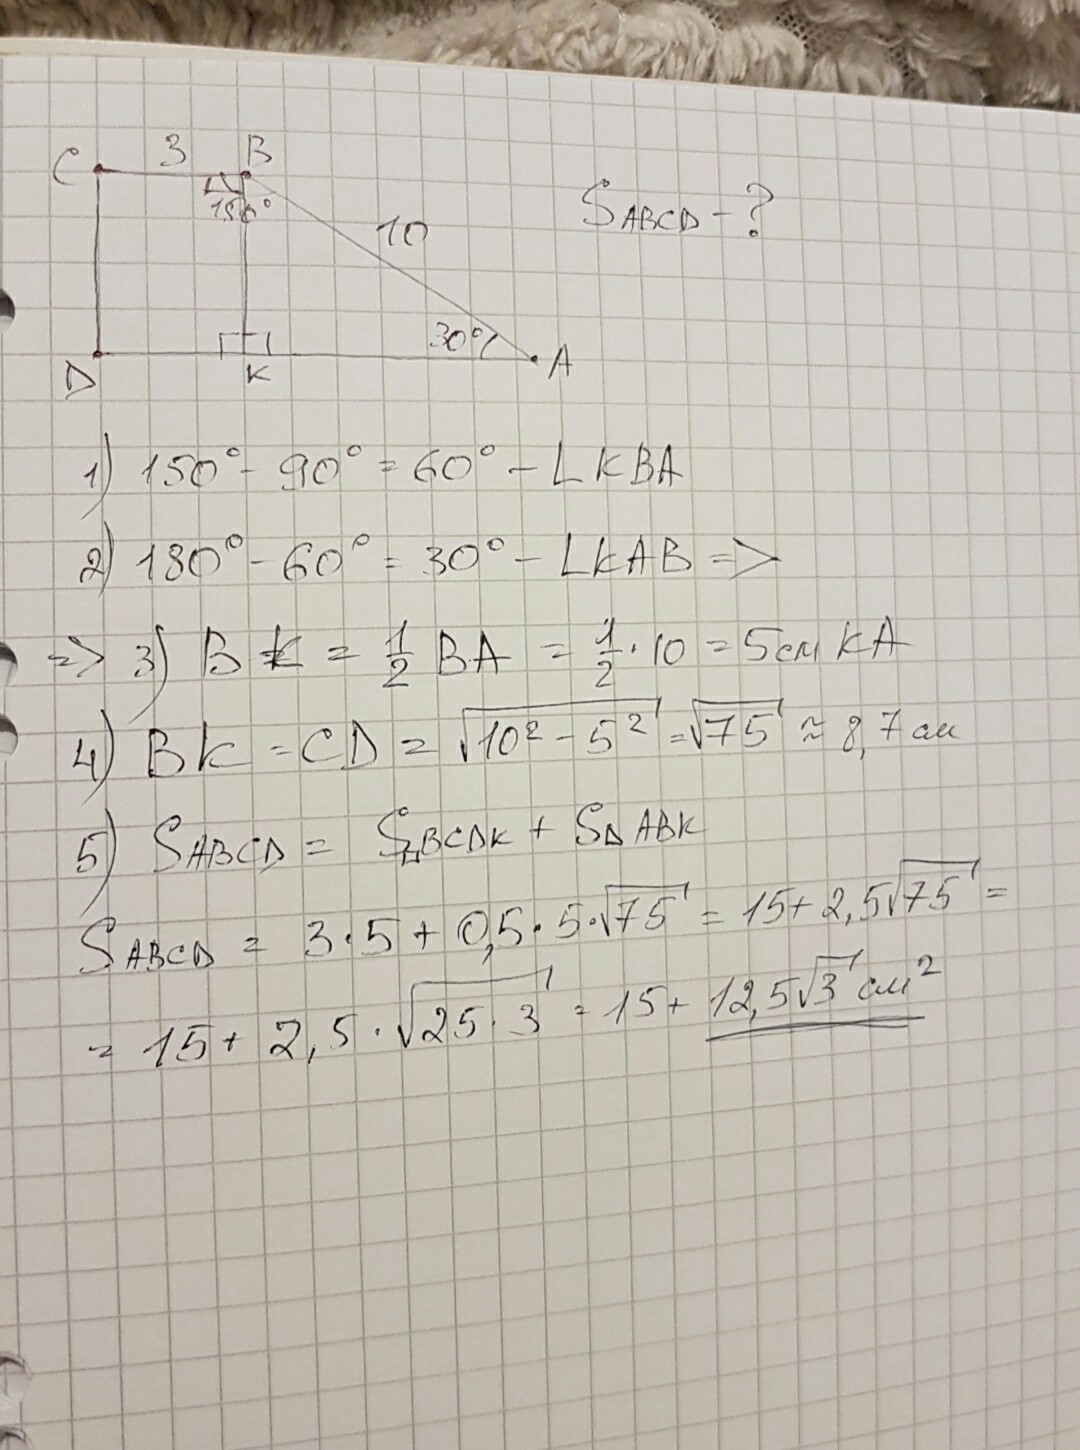 C 3 B
150°
10
S ABCD - ?
30°
D K A
1) 150° - 90° = 60° - ∠KBA
2) 180° - 60° = 30° - ∠KAB =>
=> 3) BK = 1/2 BA = 1/2 · 10 = 5см KA
4) BK = CD = √10² - 5² = √75 ≈ 8,7 см
5) S ABCD = S□BCDK + S△ABK
S ABCD = 3·5 + 0,5·5·√75 = 15 + 2,5√75 =
= 15 + 2,5·√25·3 = 15 + 12,5√3 см²